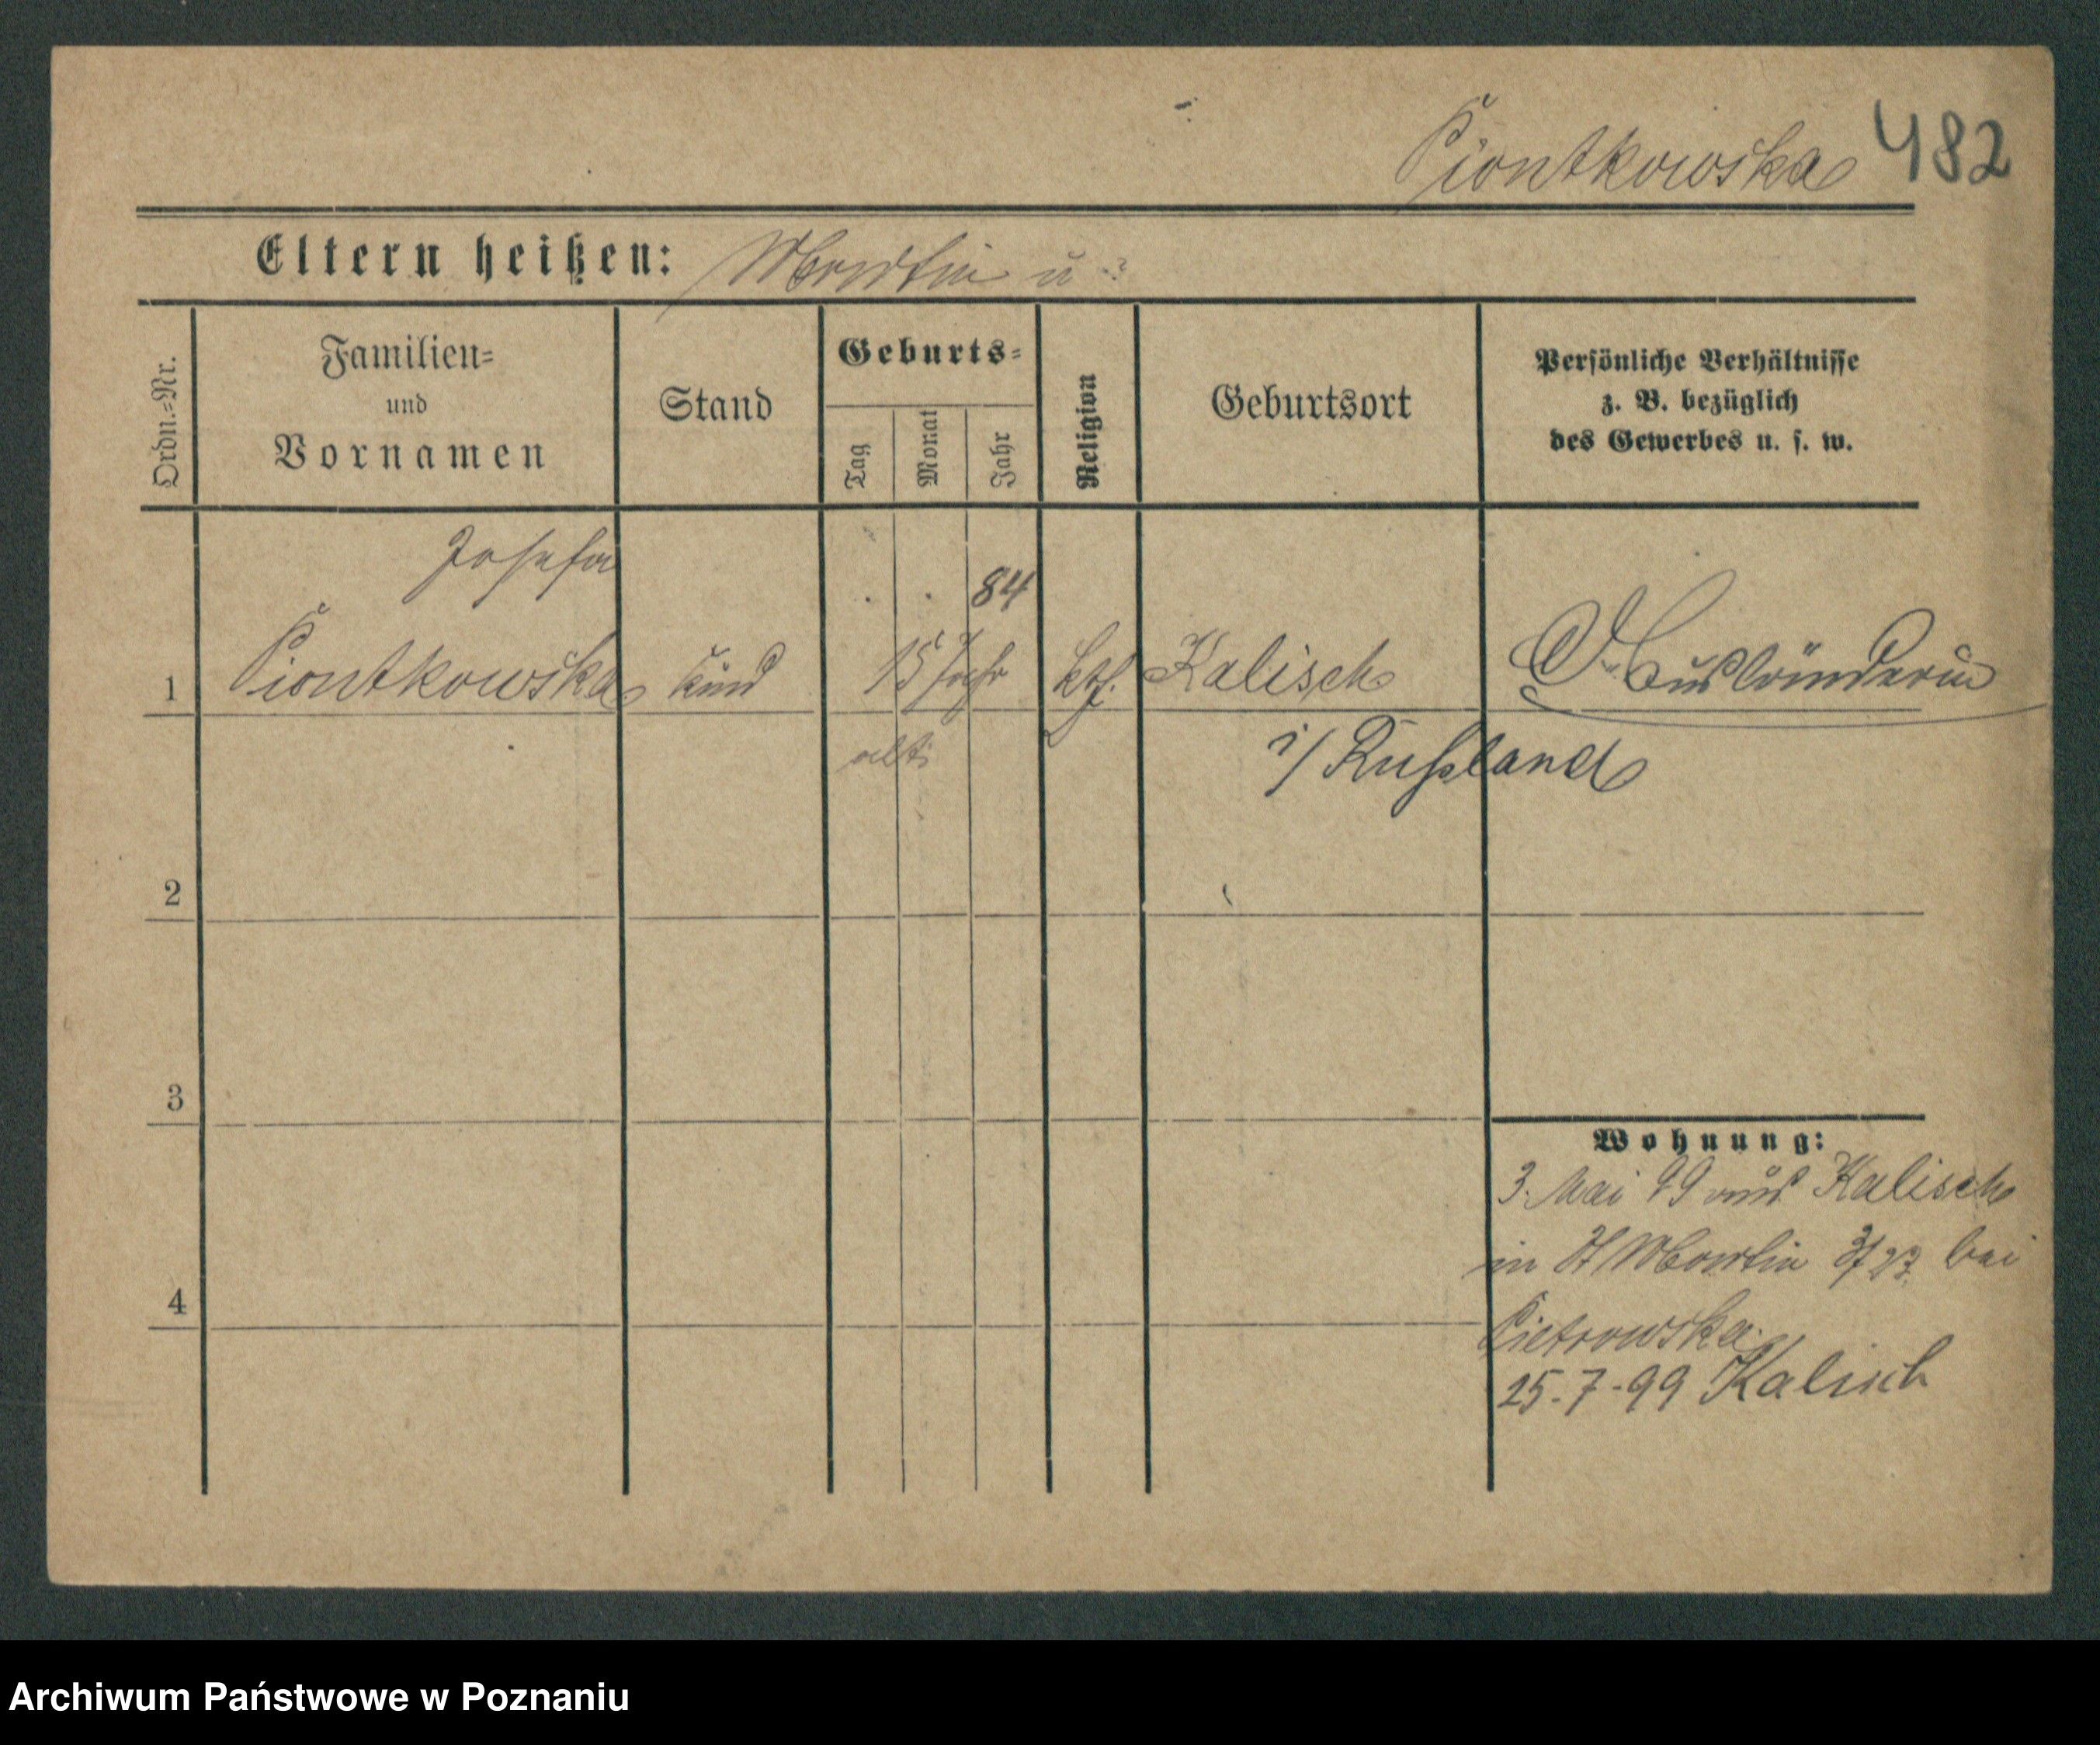 Piontkowska 482
Eltern heißen: Martin u ?
Ordn.=Nr.
Familien=
und
Vornamen
Stand
Geburts=
Tag
Monat
Jahr
Religion
Geburtsort
Persönliche Verhältnisse
z. B. bezüglich
des Gewerbes u. s. w.
Josefa
84
1 Piontkowska Kind 15 Jahr kth. Kalisch Ausländerin
alt i/ Russland
2
3
Wohnung:
3. Mai 99 aus Kalisch
in St Martin bei
4
Pietrowska
25-7-99 Kalisch
Archiwum Państwowe w Poznaniu